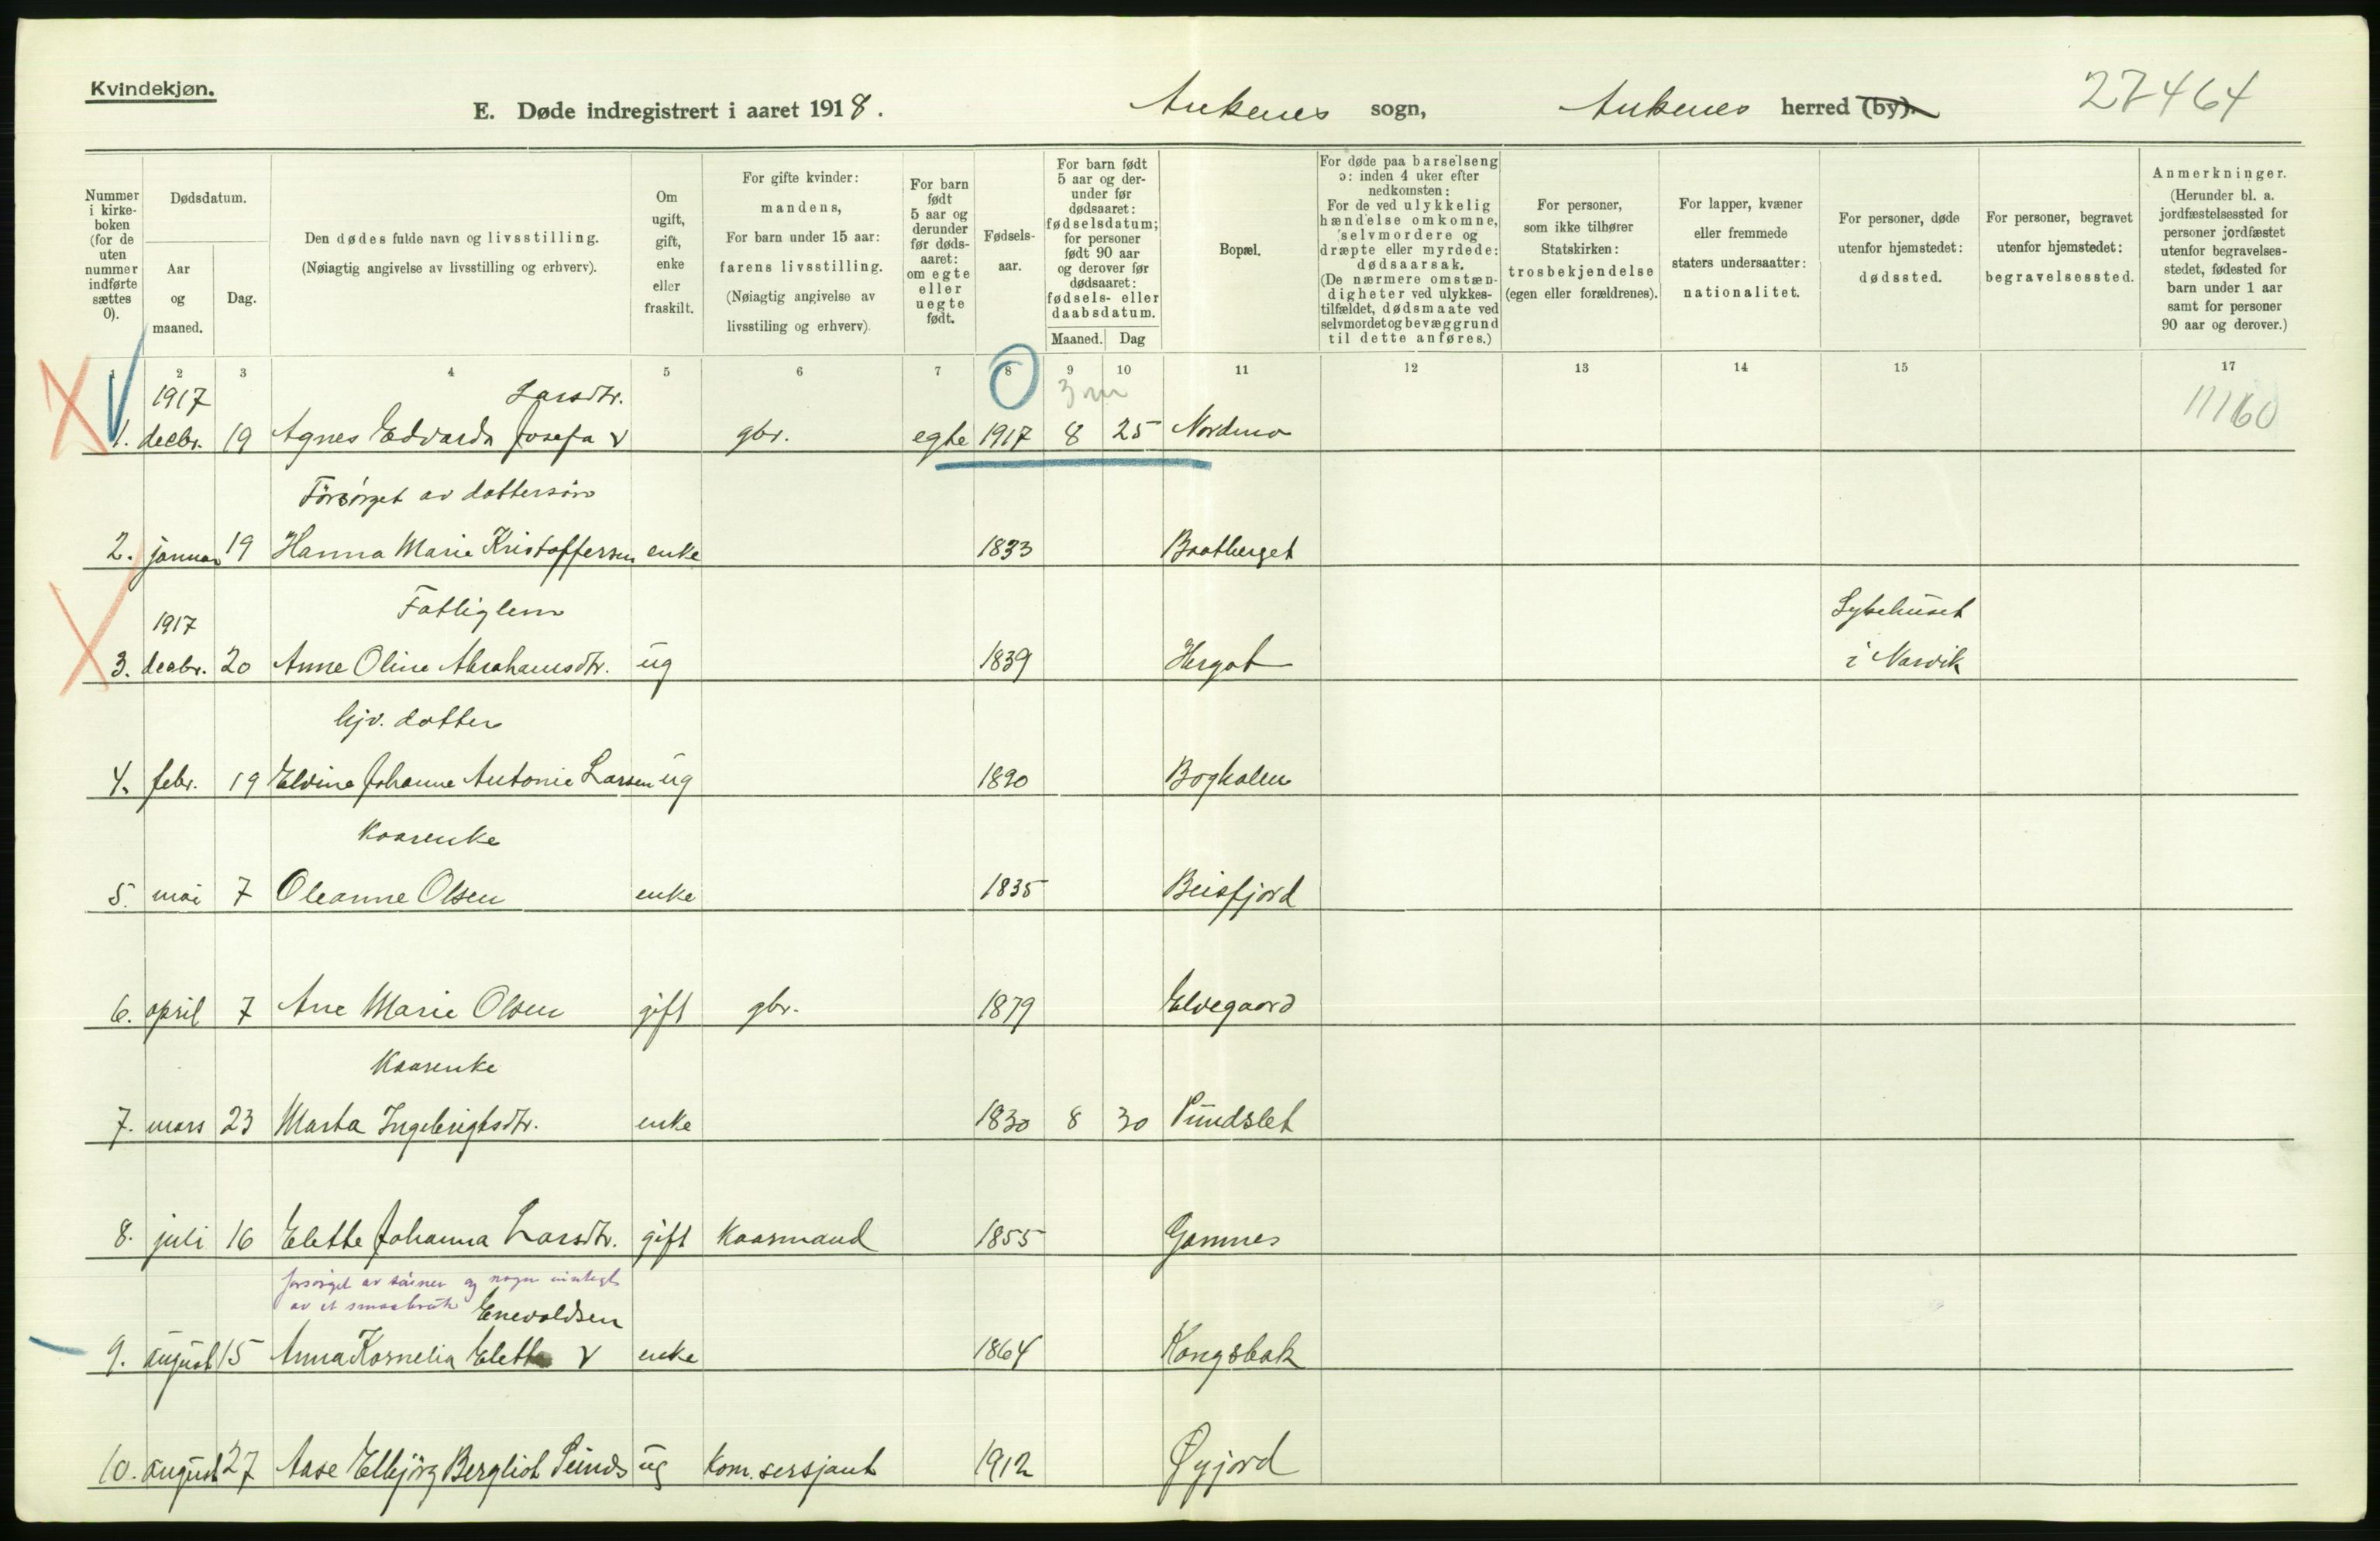 Kvindekjøn.
E. Døde indregistrert i aaret 1918. Ankenes sogn, Ankenes herred (by). 27464
Nummer i kirkeboken (for de uten nummer indførte sættes 0).
Dødsdatum.
Aar og maaned.
Dag.
Den dødes fulde navn og livsstilling.
(Nøiagtig angivelse av livsstilling og erhverv).
Om ugift, gift, enke eller fraskilt.
For gifte kvinder: mandens,
For barn under 15 aar: farens livsstilling.
(Nøiagtig angivelse av livsstiling og erhverv).
For barn født 5 aar og derunder før dødsaaret: om egte eller uegte født.
Fødselsaar.
For barn født 5 aar og derunder før dødsaaret: fødselsdatum; for personer født 90 aar og derover før dødsaaret: fødsels- eller daabsdatum.
Maaned. Dag
Bopæl.
For døde paa barselseng ɔ: inden 4 uker efter nedkomsten:
For de ved ulykkelig hændelse omkomne, selvmordere og dræpte eller myrdede: dødsaarsak.
(De nærmere omstændigheter ved ulykkestilfældet, dødsmaate ved selvmordet og bevæggrund til dette anføres.)
For personer, som ikke tilhører Statskirken: trosbekjendelse (egen eller forældrenes).
For lapper, kvæner eller fremmede staters undersaatter: nationalitet.
For personer, døde utenfor hjemstedet: dødssted.
For personer, begravet utenfor hjemstedet: begravelsessted.
Anmerkninger.
(Herunder bl. a. jordfæstelsessted for personer jordfæstet utenfor begravelsesstedet, fødested for barn under 1 aar samt for personer 90 aar og derover.)
1 2 3 4 5 6 7 8 9 10 11 12 13 14 15 17
1917 Larsdtr. 3 m 11160
1. decbr. 19 Agnes Edvarda Josefa v gbr. egte 1917 8 25 Nordmo
Forsörget av dattersön
2. januar 19 Hanna Marie Kristoffersen enke 1833 Baatberget
1917 Fattiglem Sykehuset
3. decbr. 20 Anne Oline Abrahamsdtr. ug 1839 Hergot i Narvik
hjv. datter
4. febr. 19 Eldine Johanne Antonie Larsen ug 1890 Bogholm
Kaarenke
5. mai 7 Oleanne Olsen enke 1835 Beisfjord
6. april 7 Ane Marie Olsen gift gbr. 1879 Elvegaard
Kaarenke
7. mars 23 Marta Ingebrigtsdtr. enke 1830 8 30 Pundslet
8. juli 16 Elette Johanna Larsdtr. gift Kaarmand 1855 Gamnes
forsörget av sönner og nogen
av et smaabruk Enevoldsen
9. august 15 Anna Kornelia Elette v enke 1864 Kongsbak
10. august 27 Aase Elbjörg Bergliot Seines ug Kom. sersjant 1912 Øyjord